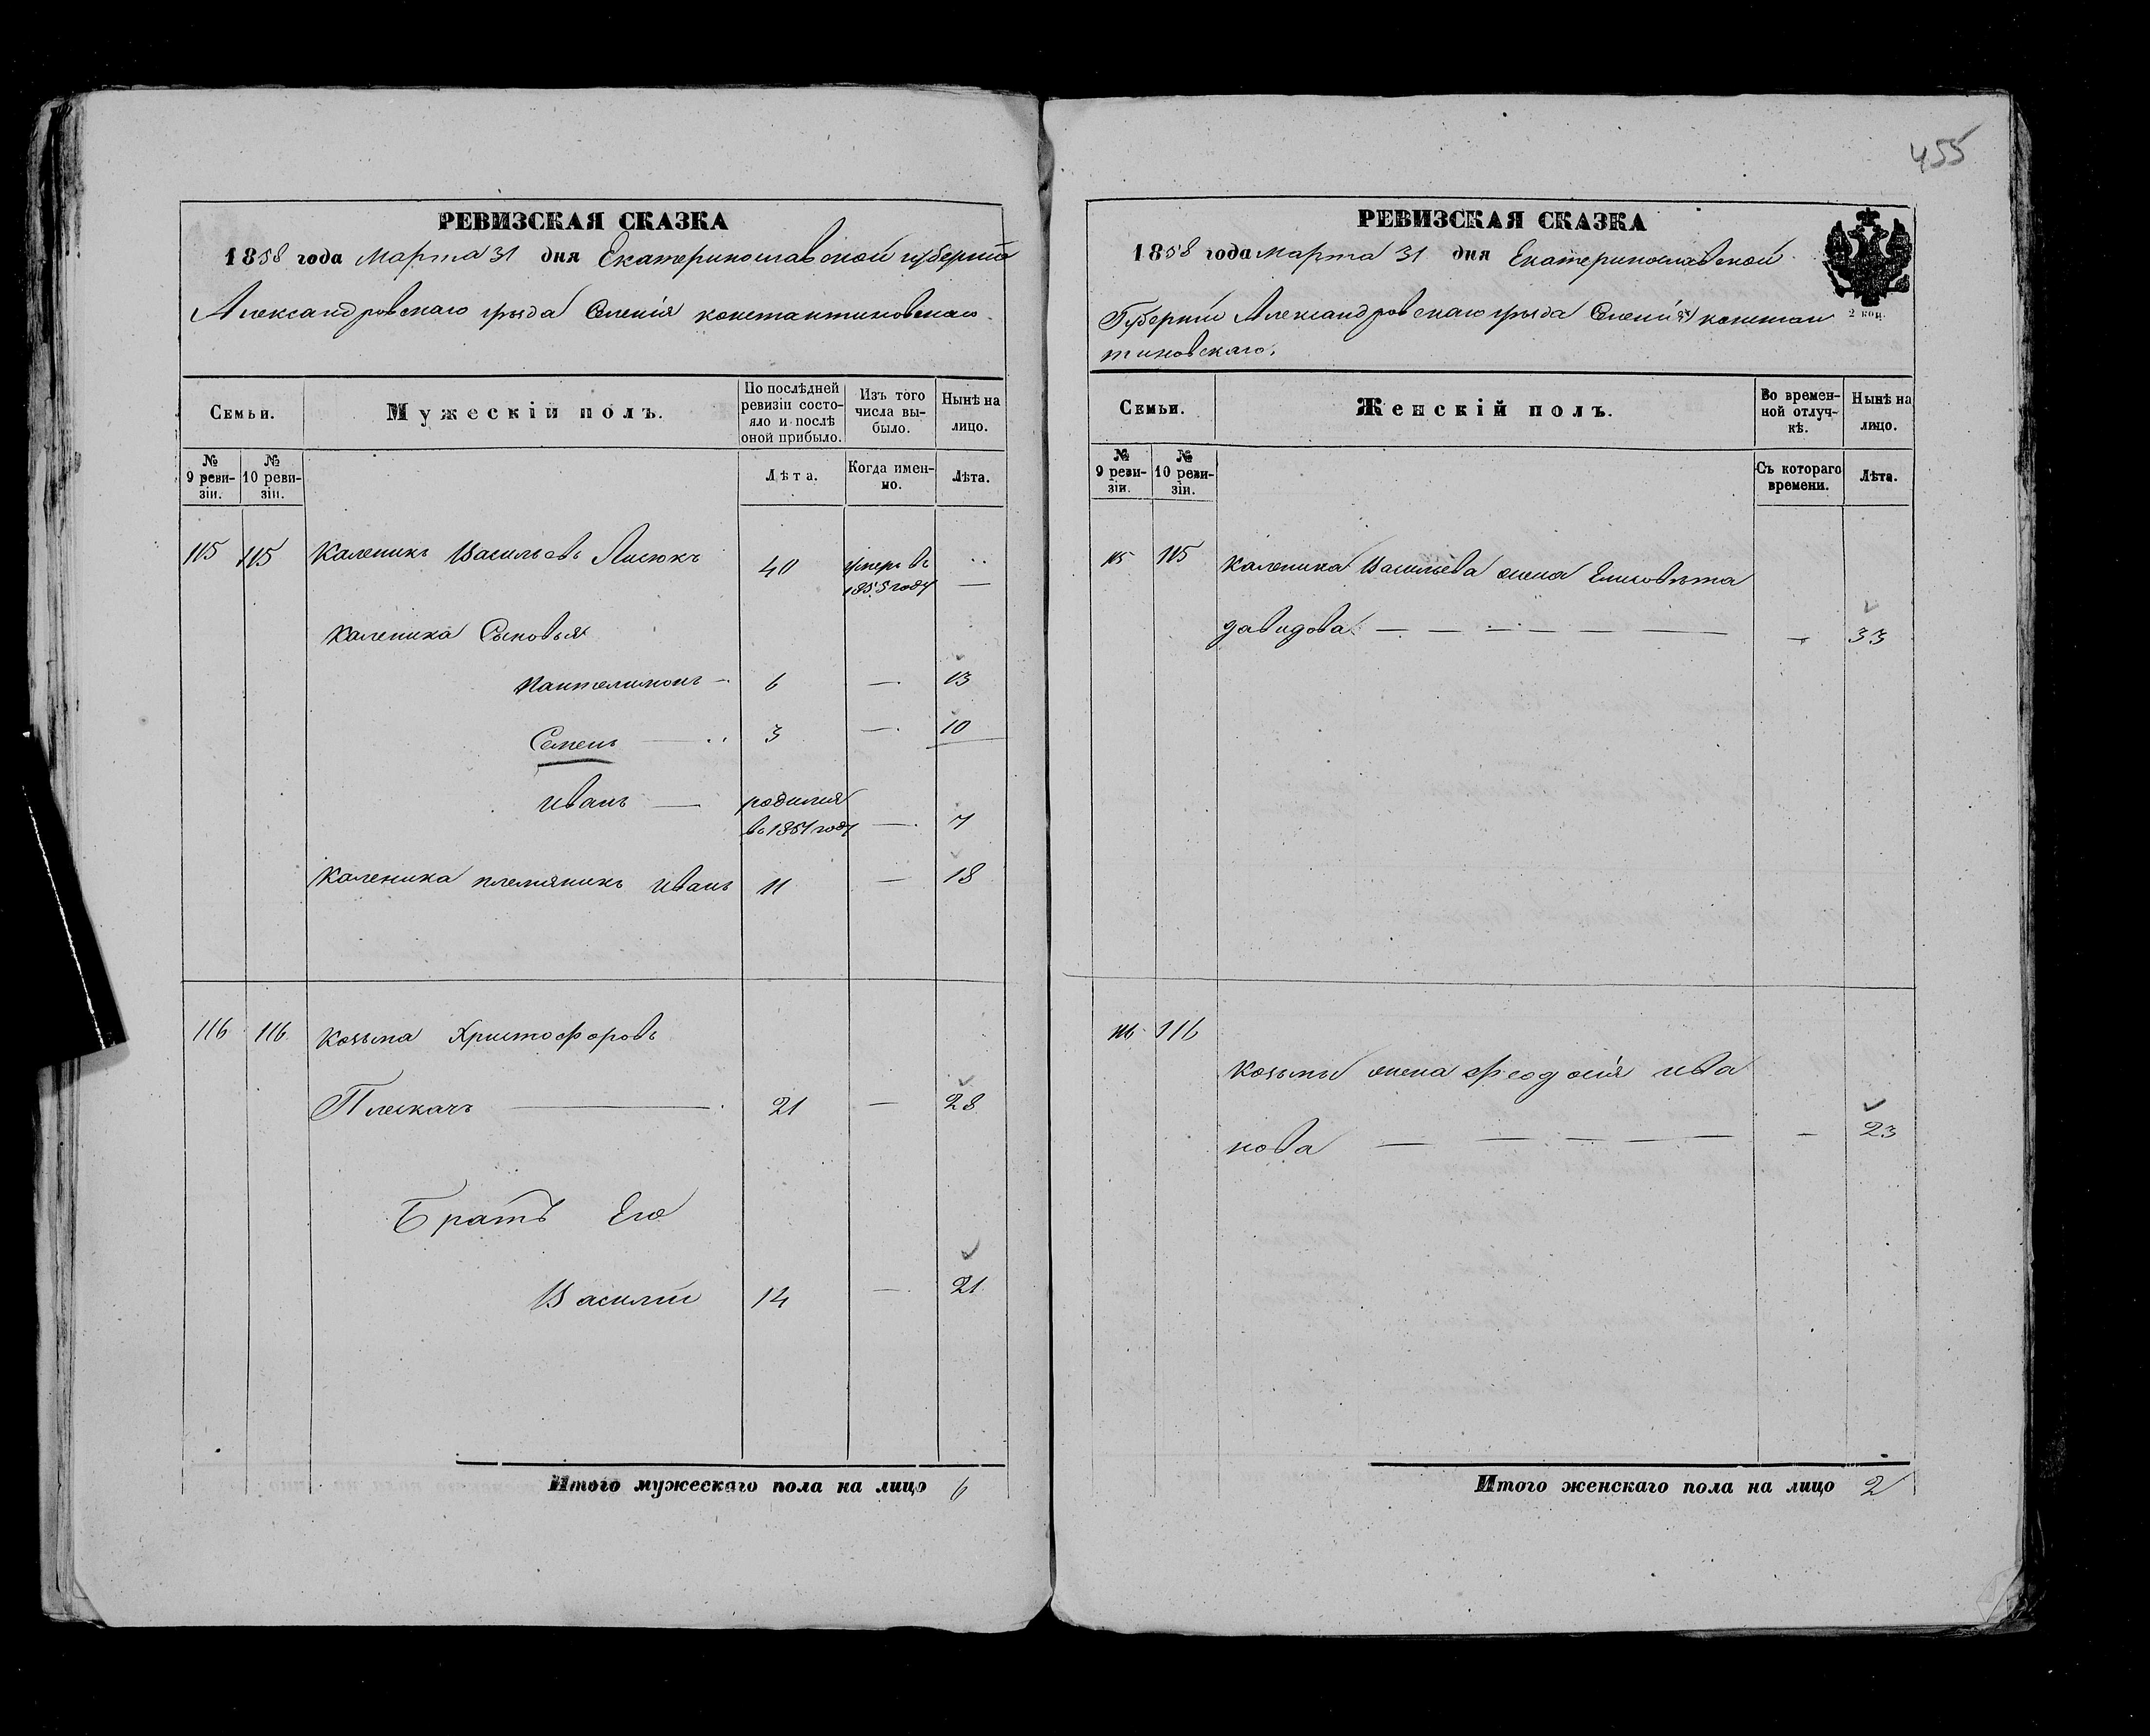 455
РЕВИЗСКАЯ СКАЗКА
1858 года Марта 31 дня Екатеринославской губернiи
Александровскаго уѣзда Селенiя константиновскаго.
Семьи.
Мужескiй полъ.
По послѣдней ревизiи состояло и послѣ оной прибыло.
Изъ того числа выбыло.
Нынѣ на лицо.
№ 9 ревизiи.
№ 10 ревизiи.
Лѣта.
Когда именно.
Лѣта.
115 115 Каленикъ Васильевъ Лисюкъ 40 умеръ въ 1855 году —
Каленика Сыновья
Пантелимонъ — 6 — 13
Семенъ — 3 — 10
Иванъ — родился въ 1851 году — 7
Каленика племяникъ Иванъ 11 — 18
116 116 Козьма Христофоровъ
Плескачъ — 21 — 28
Братъ Его
Василiй 14 — 21
Итого мужескаго пола на лицо 6
РЕВИЗСКАЯ СКАЗКА
1858 года марта 31 дня Екатеринославской
Губернiи Александровскаго уѣзда Селенiя констан
тиновскаго.
2 коп.
Семьи.
Женскiй полъ.
Во временной отлучкѣ.
Нынѣ на лицо.
№ 9 ревизiи.
№ 10 ревизiи.
Съ котораго времени.
Лѣта.
115 115 Каленика Васильева жена Елисовѣта
давидова — — — — — — — 33
116 116
Козьмы жена Феодосiя ива
нова — — — — — — 23
Итого женскаго пола на лицо 2